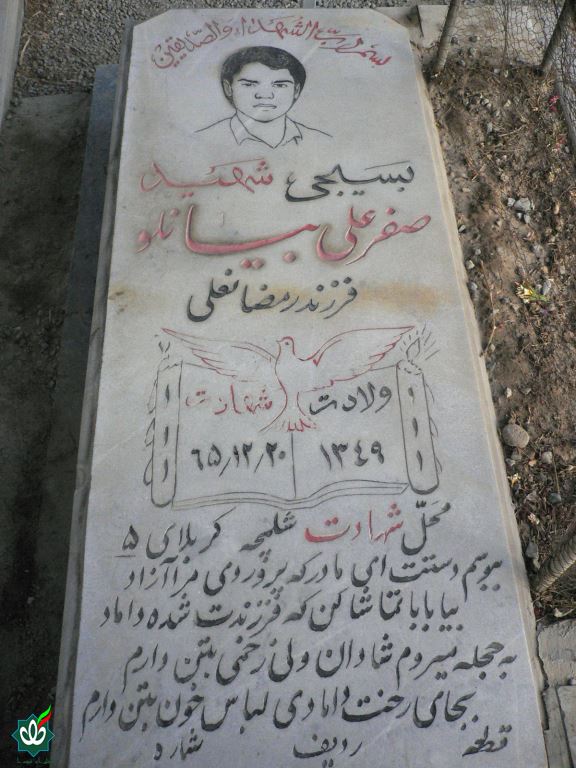 بسم رب الشهداء والصدیقین
بسیجی شهید
صفرعلی بیانلو
فرزند رمضانعلی
ولادت شهادت
۱۳۴۹ ۶۵٫۱۲٫۲۰
محل شهادت شلمچه کربلای ۵
ببوسم دستت ای مادر که پروردی مرا آزاد
بیا بابا تماشا کن که فرزندت شده داماد
به حجله میروم شادان ولی زخمی بتن دارم
بجای رخت دامادی لباس خون بتن دارم
قطعه ردیف شماره